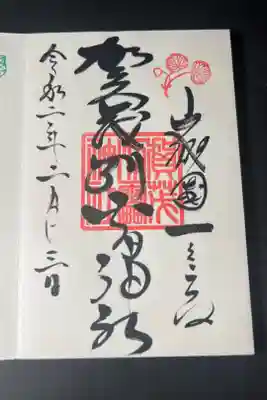 山城國一之宮
賀茂別雷神社
令和二年二月十三日